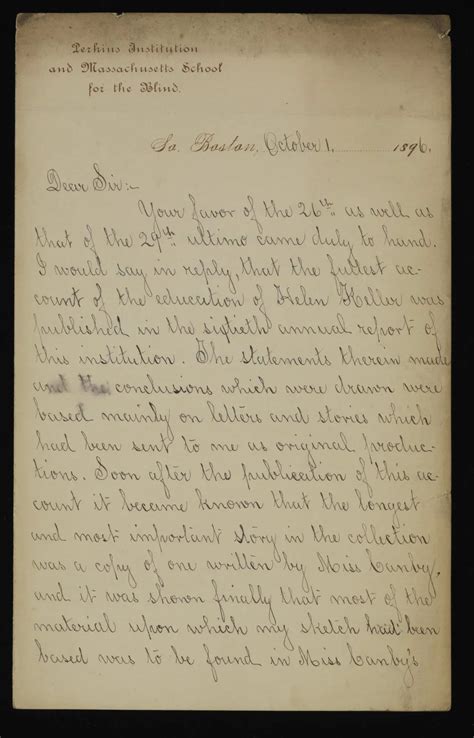 Perkins Institution
and Massachusetts School
for the Blind.
So. Boston, October 1. 1896.
Dear Sir:-
Your favor of the 26th as well as
that of the 29th ultimo came duly to hand.
I would say in reply, that the fullest ac-
count of the education of Helen Keller was
published in the sixtieth annual report of
this institution. The statements therein made
and the conclusions which were drawn were
based mainly on letters and stories which
had been sent to me as original produc-
tions. Soon after the publication of this ac-
count it became known that the longest
and most important story in the collection
was a copy of one written by Miss Canby,
and it was shown finally that most of the
material upon which my sketch had been
based was to be found in Miss Canby's